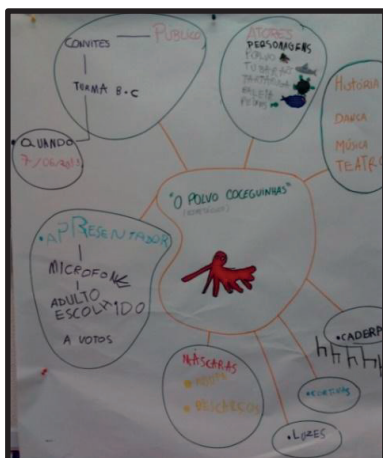 CONVITES
PUBLICO
TURMA B+C
QUANDO
ATORES
PERSONAGENS
POLVO
TUBARÃO
TARTARUGA
BALEIA
PEIXES
HISTÓRIA
DANÇA
MÚSICA
TEATRO
"O POLVO COCEGUINHAS"
•APRESENTADOR
MICROFONE
ADULTO
ESCOLHIDO
A VOTOS
MÁSCARAS
•CADEIR
•LUZES